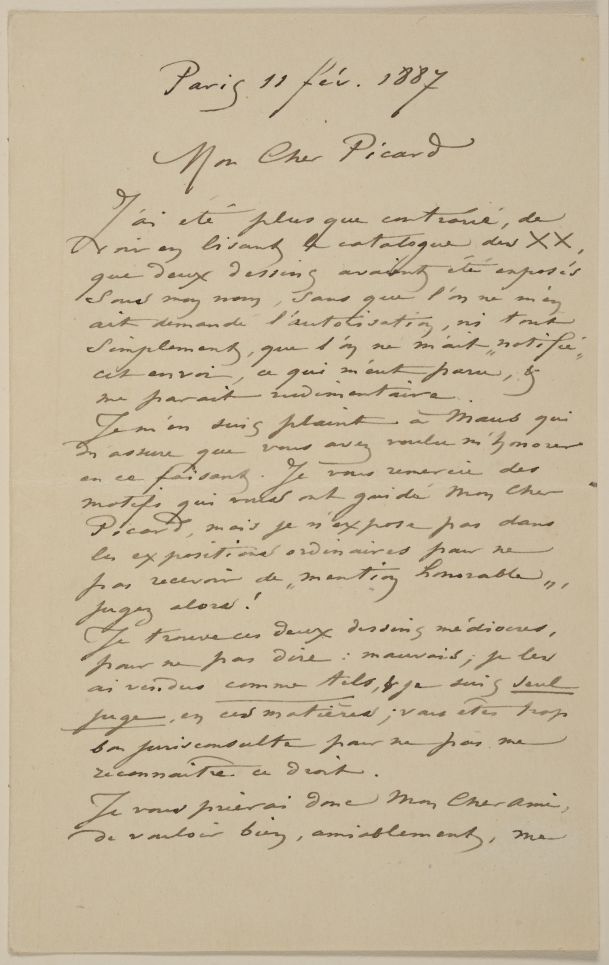 Paris 11 fév. 1887
Mon Cher Picard
J'ai été plus que contrarié, de
voir en lisant le catalogue des XX,
que deux dessins avaient été exposés
sous mon nom, sans que l'on ne m'en
ait demandé l'autorisation, ni tout
simplement, que l'on ne m'ait „notifié„
cet envoi, ce qui m'eut paru, &
me parait rudimentaire.
Je m'en suis plaint à Maus qui
m'assure que vous avez voulu m'honorer
en ce faisant. Je vous remercie des
motifs qui vous ont guidé Mon Cher
Picard, mais je n'expose pas dans
les expositions ordinaires pour ne
pas recevoir de „mention honorable„,
jugez alors!
Je trouve ces deux dessins médiocres,
pour ne pas dire : mauvais ; je les
ai vendus comme tels, & je suis seul
juge, en ces matières ; vous êtes trop
bon jurisconsulte pour ne pas me
reconnaître ce droit.
Je vous prierai donc Mon Cher Ami,
de vouloir bien, amiablement, me